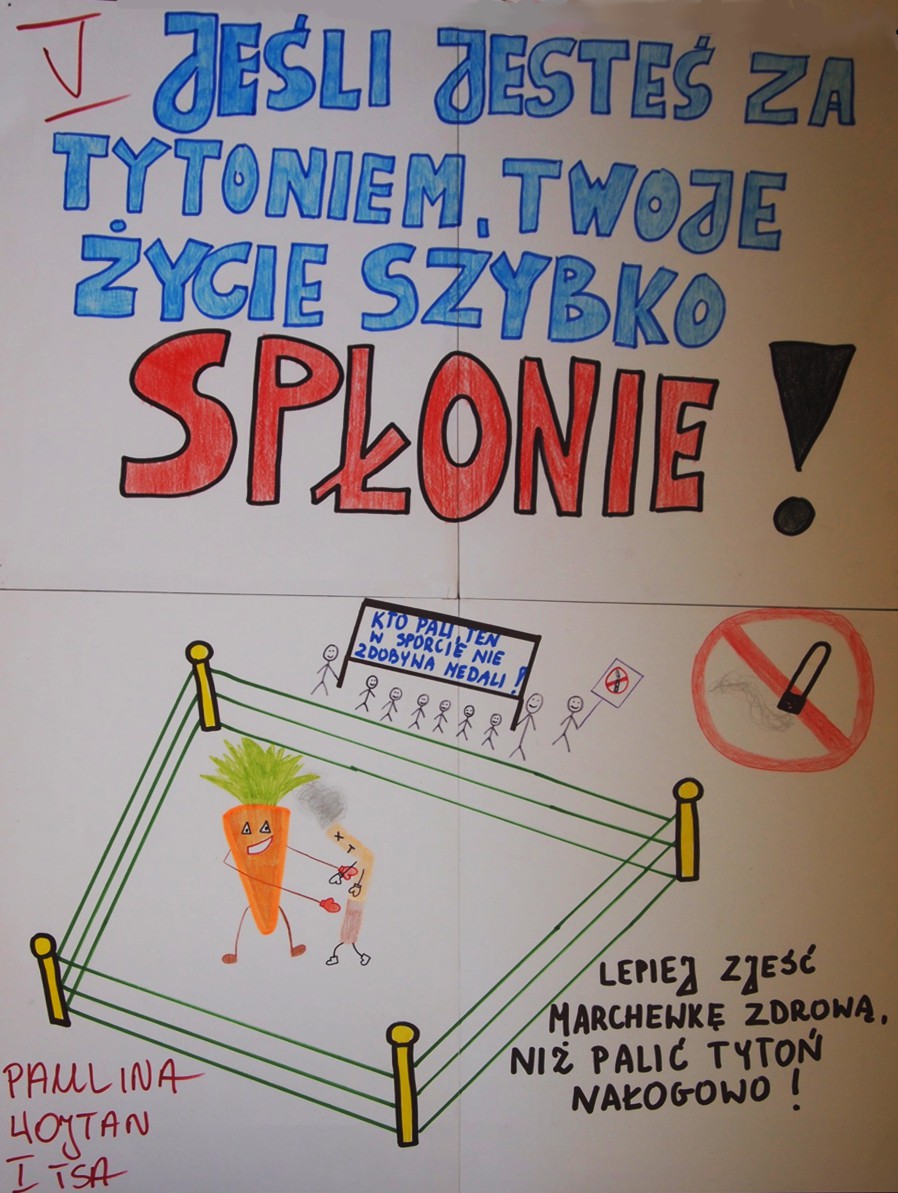 V
JEŚLI JESTEŚ ZA
TYTONIEM, TWOJE
ŻYCIE SZYBKO
SPŁONIE!
KTO PALI, TEN
W SPORCIE NIE
ZDOBYNA MEDALI!
LEPIEJ ZJEŚĆ
MARCHEWKĘ ZDROWĄ,
NIŻ PALIĆ TYTOŃ
NAŁOGOWO!
PAULINA
I TSA